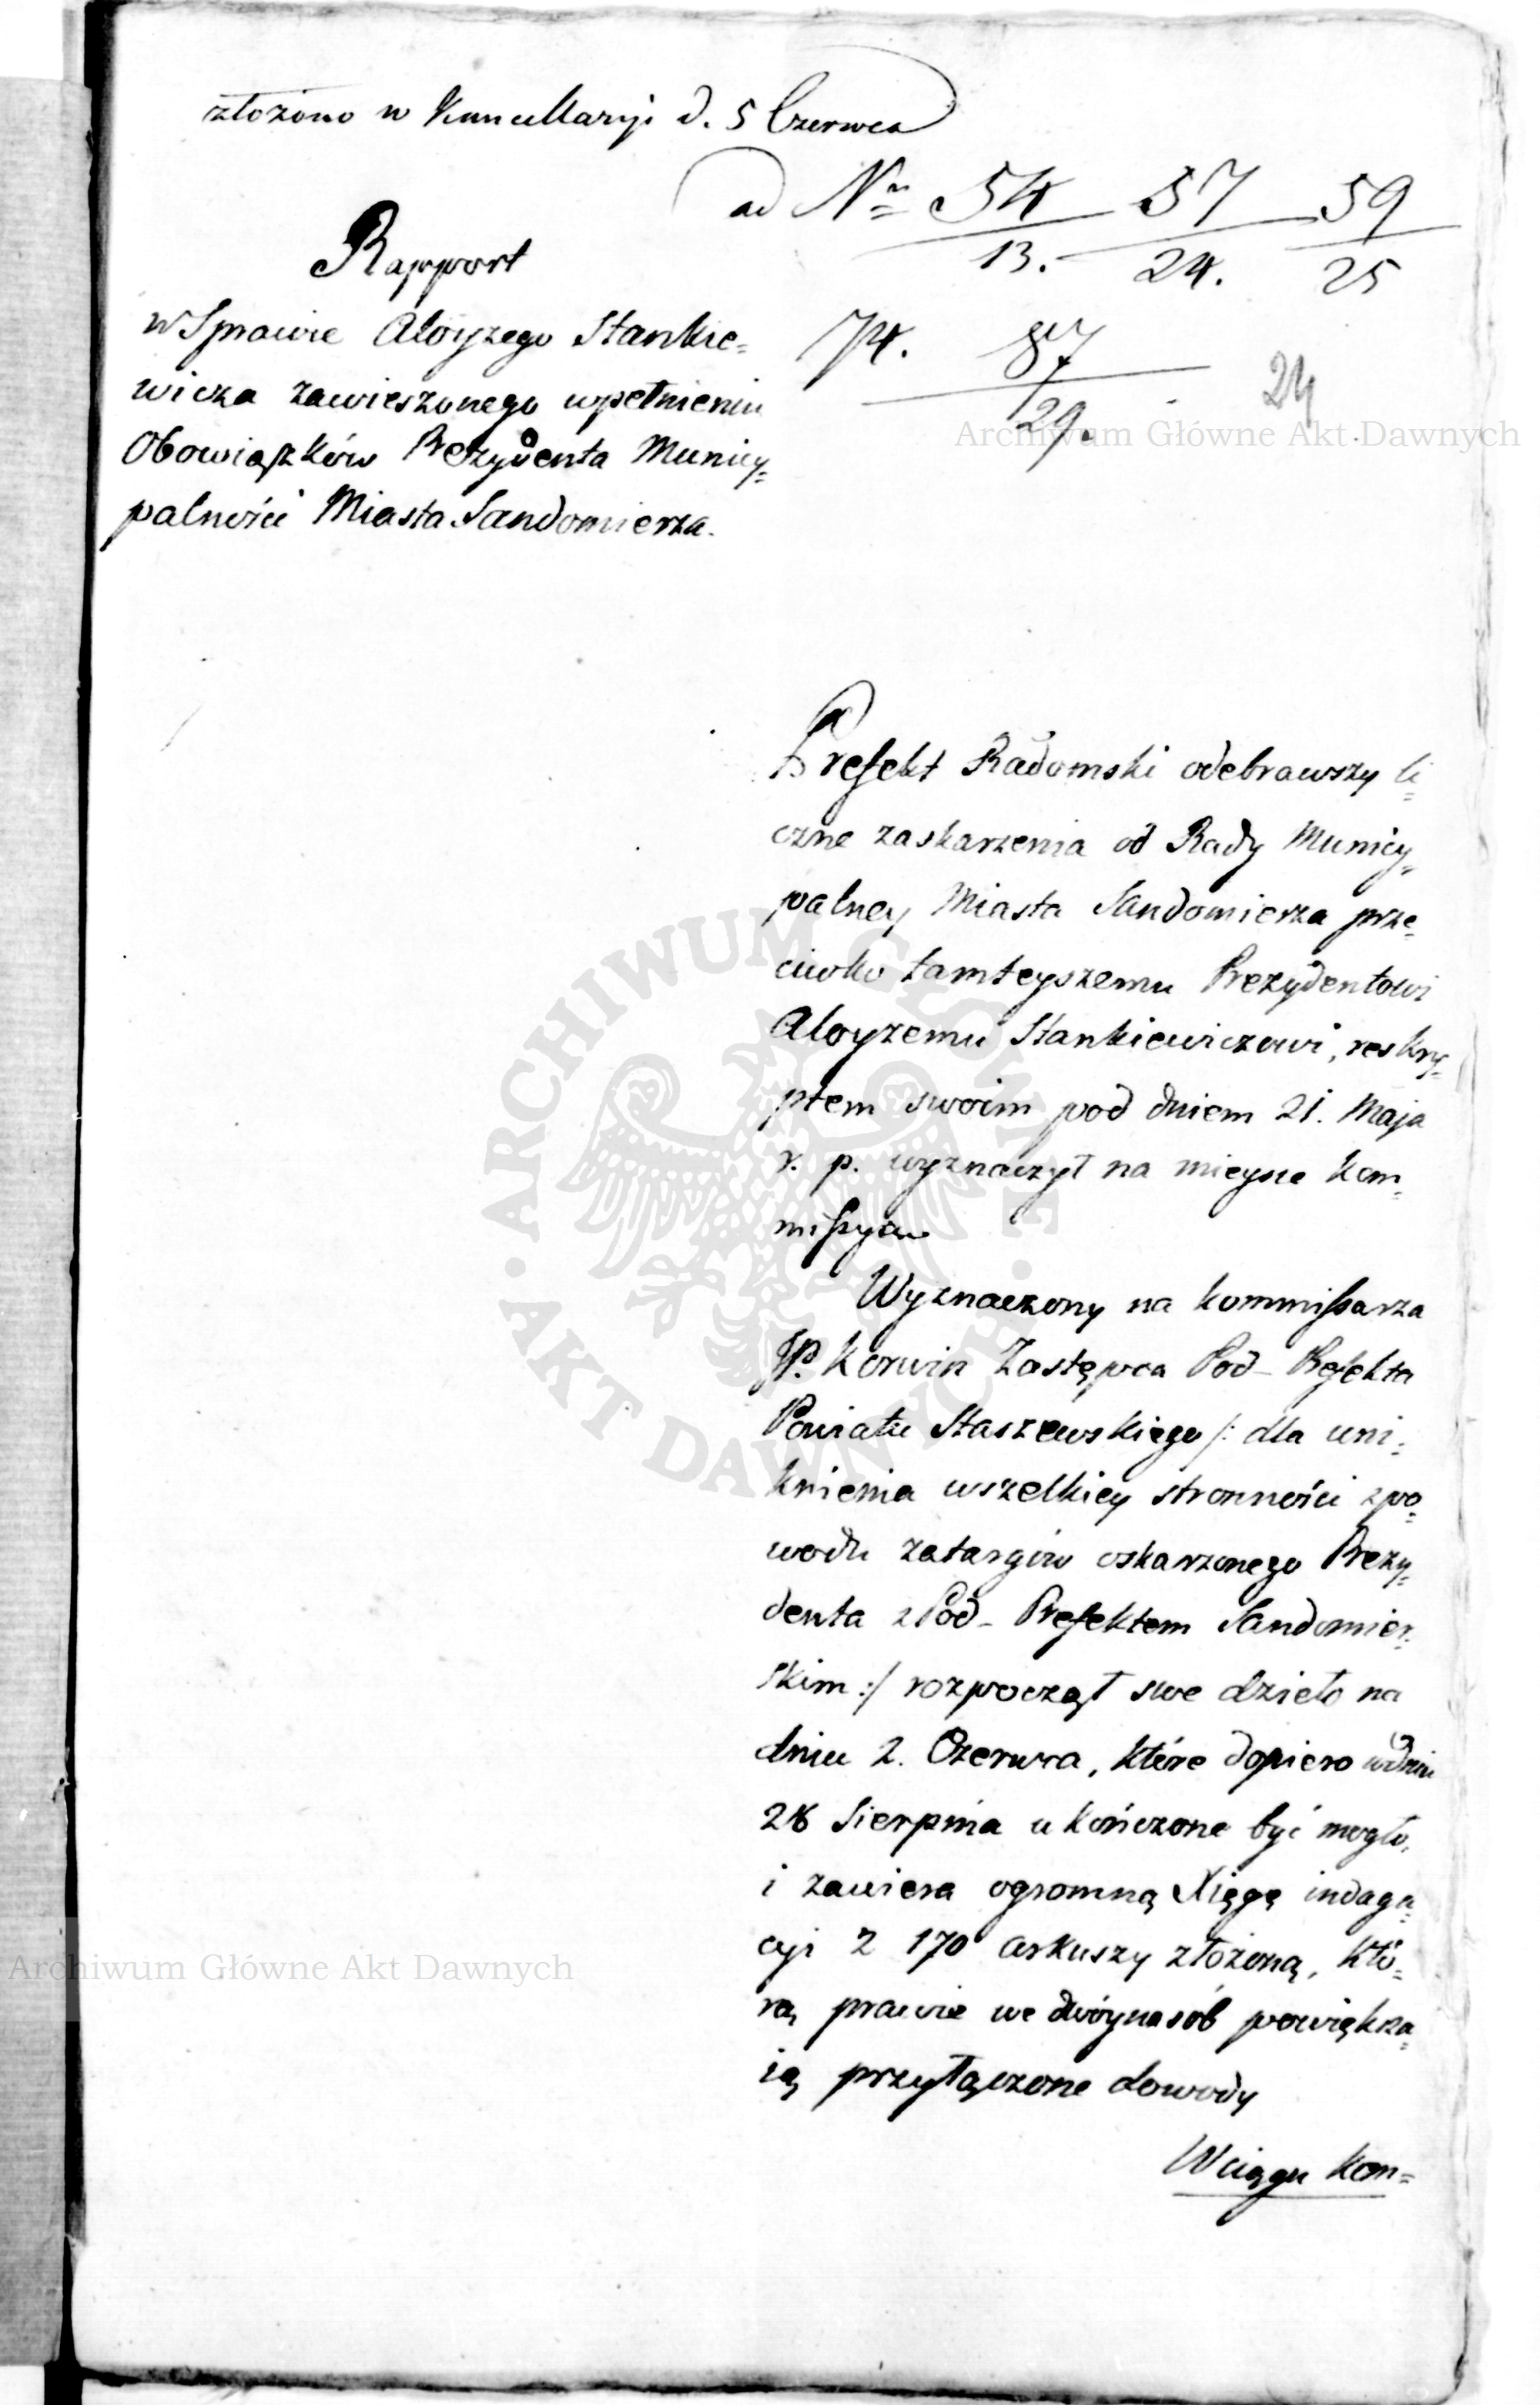 złożono w Kancellaryi d. 5 Czerwca
ad Nr 54 57 59
13. 24. 25
74. 87
29.
24
Rapport
w Sprawie Aloyzego Stankie=
wicza zawieszonego w pełnieniu
Obowiązków Prezydenta Municy=
palności Miasta Sandomierza.
Prefekt Radomski odebrawszy li=
czne zaskarzenia od Rady Municy=
palney Miasta Sandomierza prze=
ciwko tamteyszemu Prezydentowi
Aloyzemu Stankiewiczowi, reskry=
ptem swoim pod dniem 21. Maja
r. p. wyznaczył na mieysce Kom=
missyą
Wyznaczony na kommissarza
JP. Korwin Zastępca Pod-Prefekta
Powiatu Staszewskiego /: dla uni=
knienia wszelkiey stronności z po=
wodu zatargów oskarzonego Prezy=
denta z Pod-Prefektem Sandomier=
skim :/ rozpoczął swe dzieło na
dniu 2. Czerwca, które dopiero w dniu
28 Sierpnia ukończone być mogło,
i zawiera ogromną Xięgę indaga=
cyi z 170 arkuszy złożoną, któ=
rą prawie we dwóynasób powiększa=
ią przyłączone dowody
W ciągu Kom=
Archiwum Główne Akt Dawnych
ARCHIWUM GŁÓWNE
AKT DAWNYCH
Archiwum Główne Akt Dawnych